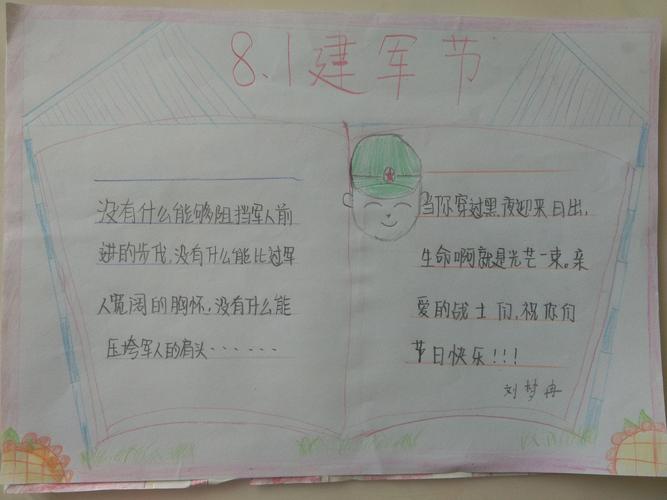 8.1建军节
没有什么能够阻挡军人前
进的步伐,没有什么能比过军
人宽阔的胸怀,没有什么能
压垮军人的肩头······
当你穿过黑夜迎来日出,
生命啊就是光芒一束。亲
爱的战士们,祝你们
节日快乐!!!
刘梦冉